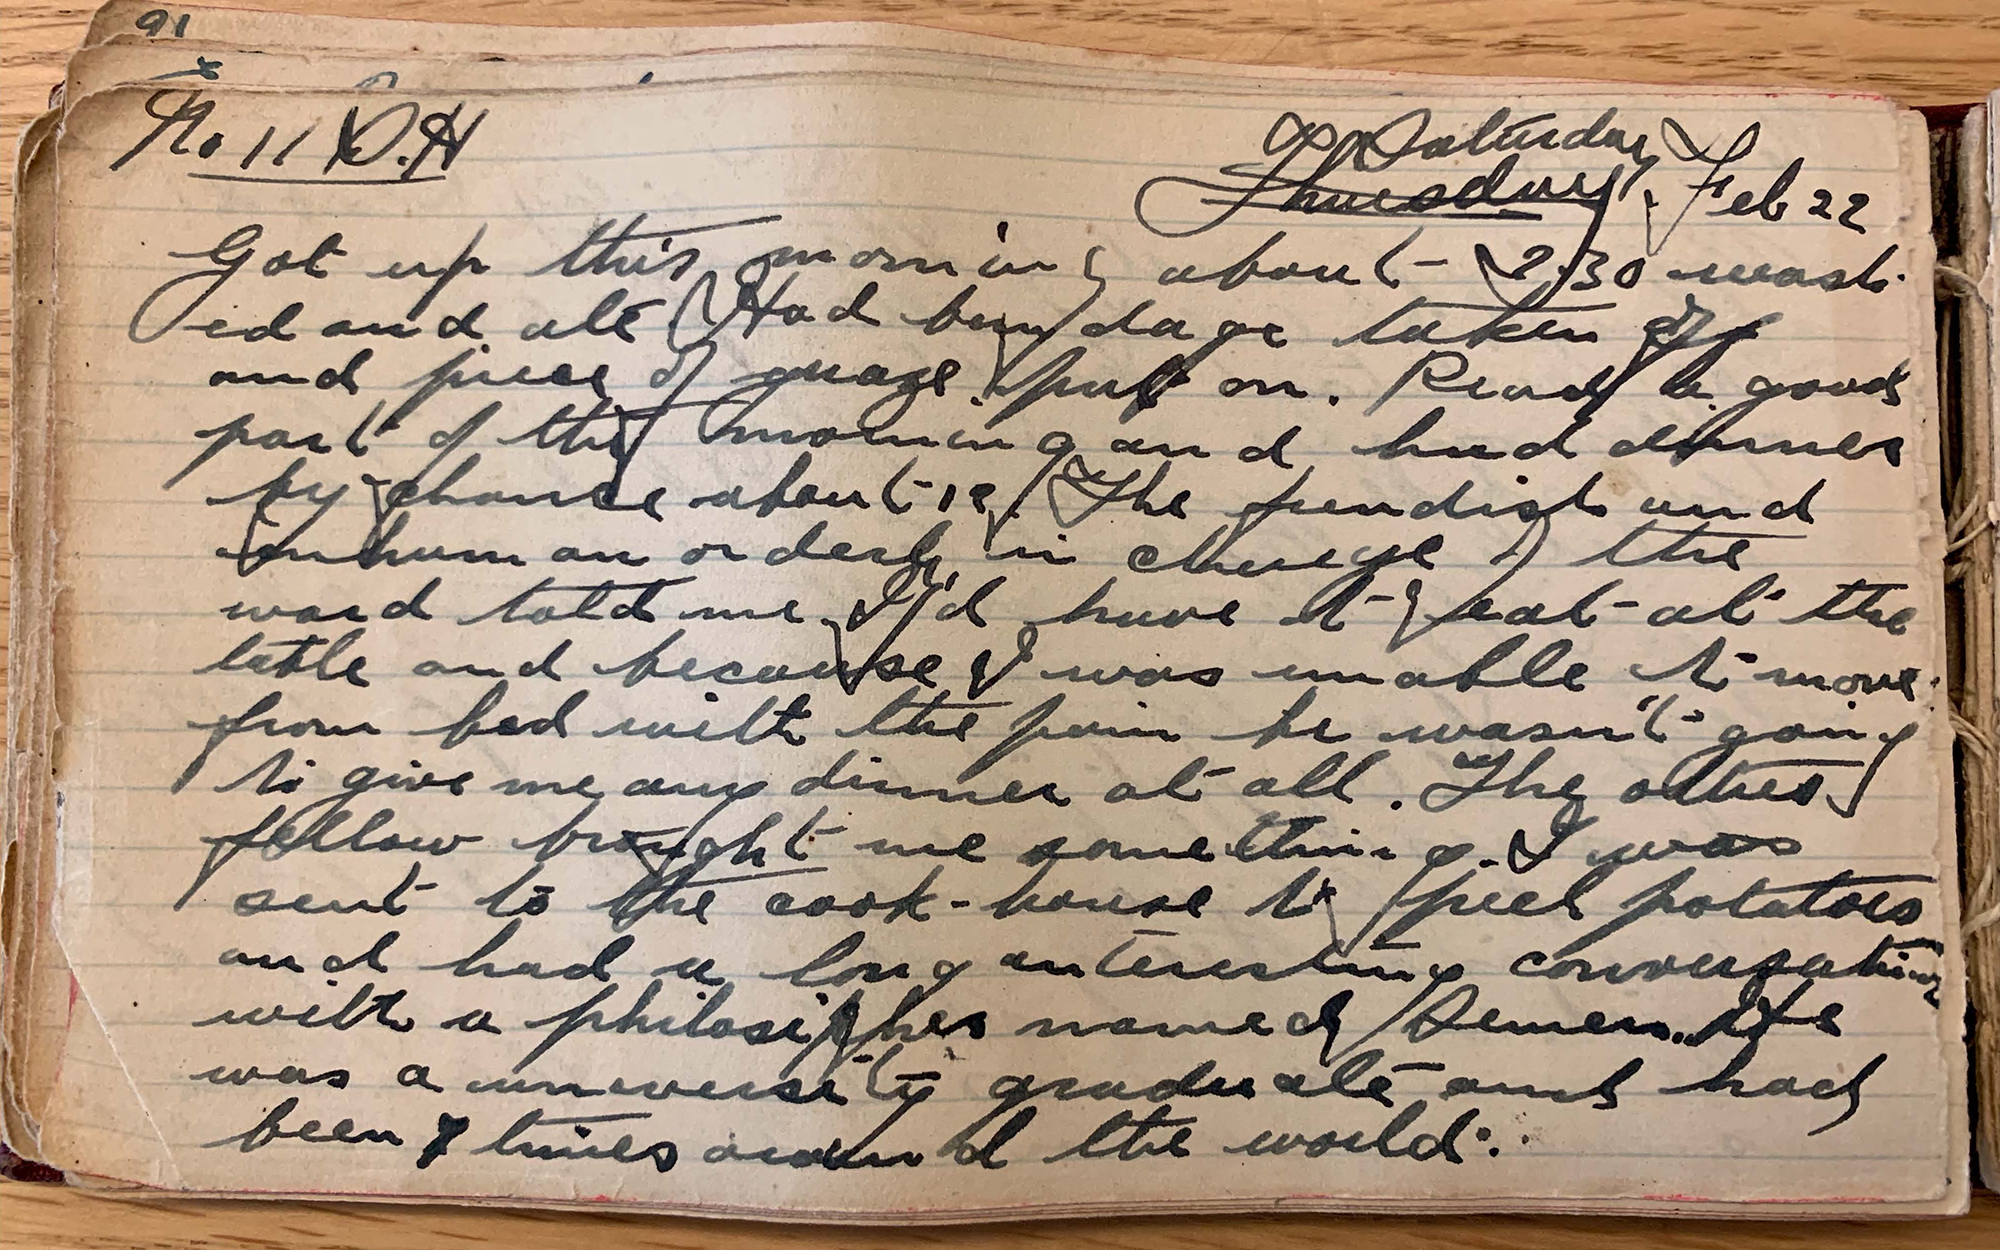 91
No 11 D.H
Saturday
Thursday. Feb 22
Got up this morning about 7.30 wash-
ed and ate. Had bandage taken off
and piece of guaze put on. Read a good
part of the morning and had dinner
by chance about 12. The fiendish and
inhuman orderly in charge of the
ward told me I'd have to eat at the
table and because I was unable to move
from bed with the pain he wasn't going
to give me any dinner at all. The other
fellow brought me something. I was
sent to the cook-house to peel potatoes
and had a long interesting conversation
with a philosipher named He
was a university graduate and had
been 7 times around the world.